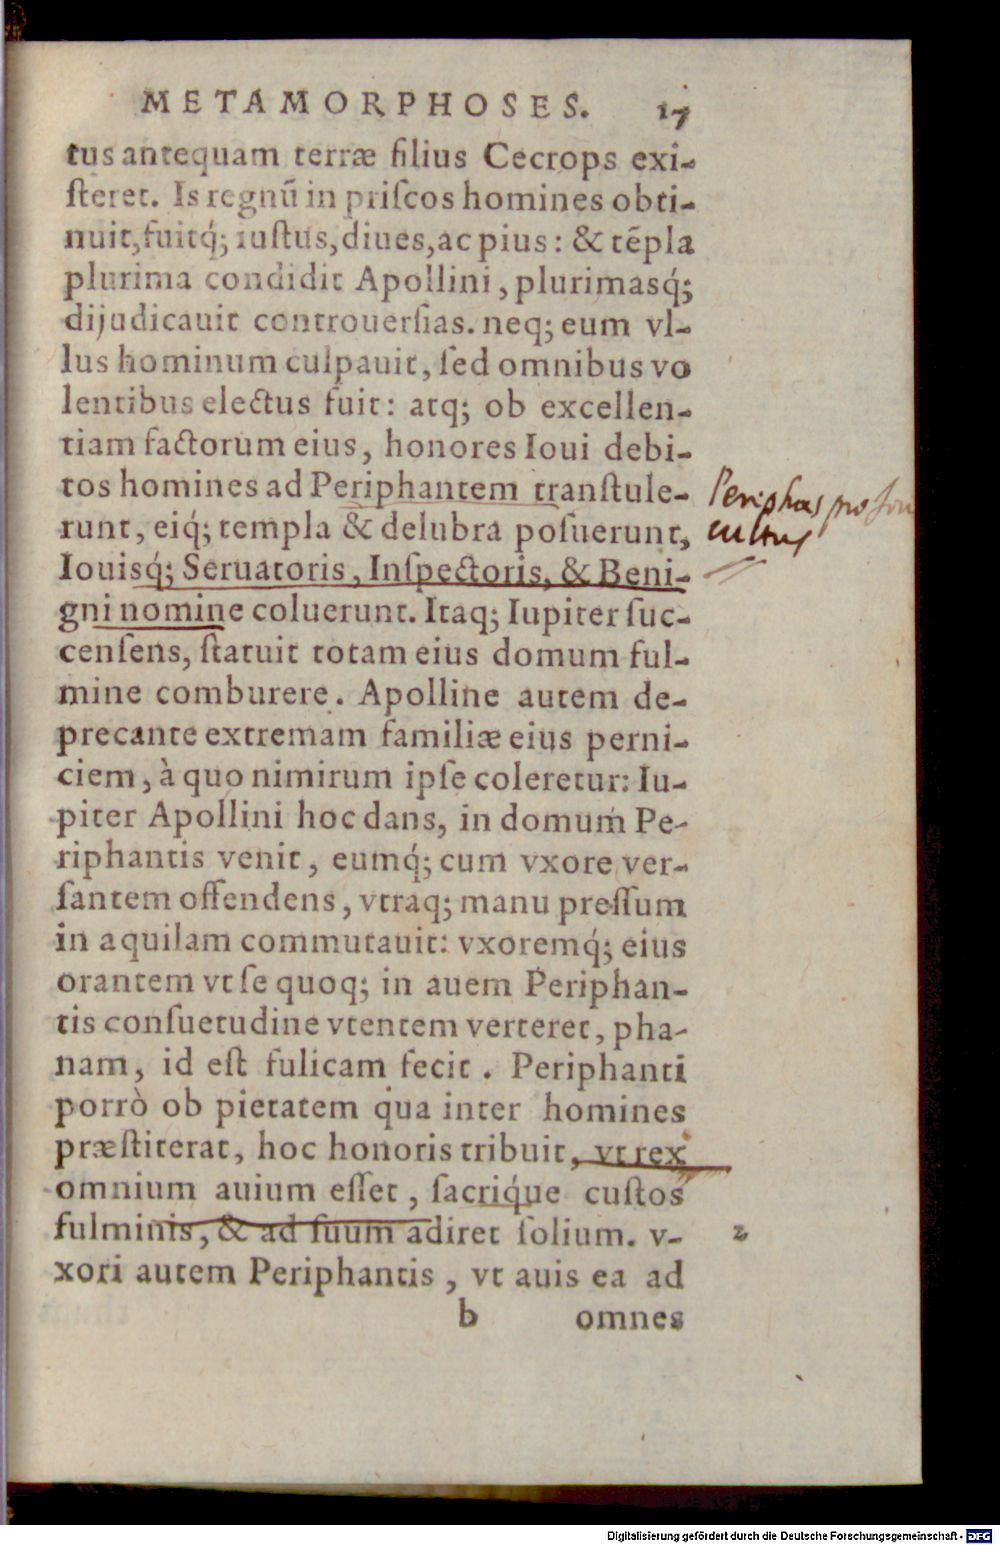 METAMORPHOSES. 17
tus antequam terræ filius Cecrops exi-
ſteret. Is regnū in priſcos homines obti-
nuit, fuitq́; iuſtus, diues, ac pius: & tēpla
plurima condidit Apollini, plurimasq́;
dijudicauit controuerſias. neq; eum vl-
lus hominum culpauit, ſed omnibus vo
lentibus electus fuit: atq; ob excellen-
tiam factorum eius, honores Ioui debi-
tos homines ad Periphantem tranſtule-
runt, eiq́; templa & delubra poſuerunt,
Iouisq́; Seruatoris, Inſpectoris, & Beni-
gni nomine coluerunt. Itaq; Iupiter ſuc-
cenſens, ſtatuit totam eius domum ful-
mine comburere. Apolline autem de-
precante extremam familiæ eius perni-
ciem, à quo nimirum ipſe coleretur: Iu-
piter Apollini hoc dans, in domum Pe-
riphantis venit, eumq́; cum vxore ver-
ſantem offendens, vtraq; manu preſſum
in aquilam commutauit: vxoremq́; eius
orantem vt ſe quoq; in auem Periphan-
tis conſuetudine vtentem verteret, pha-
nam, id eſt fulicam fecit. Periphanti
porrò ob pietatem qua inter homines
præſtiterat, hoc honoris tribuit, vt rex
omnium auium eſſet, ſacriq́ue cuſtos
fulminis, & ad ſuum adiret ſolium. v-
xori autem Periphantis, vt auis ea ad
b omnes
Periphas pro Iou
cultus
2
Digitalisierung gefördert durch die Deutsche Forschungsgemeinschaft - DFG